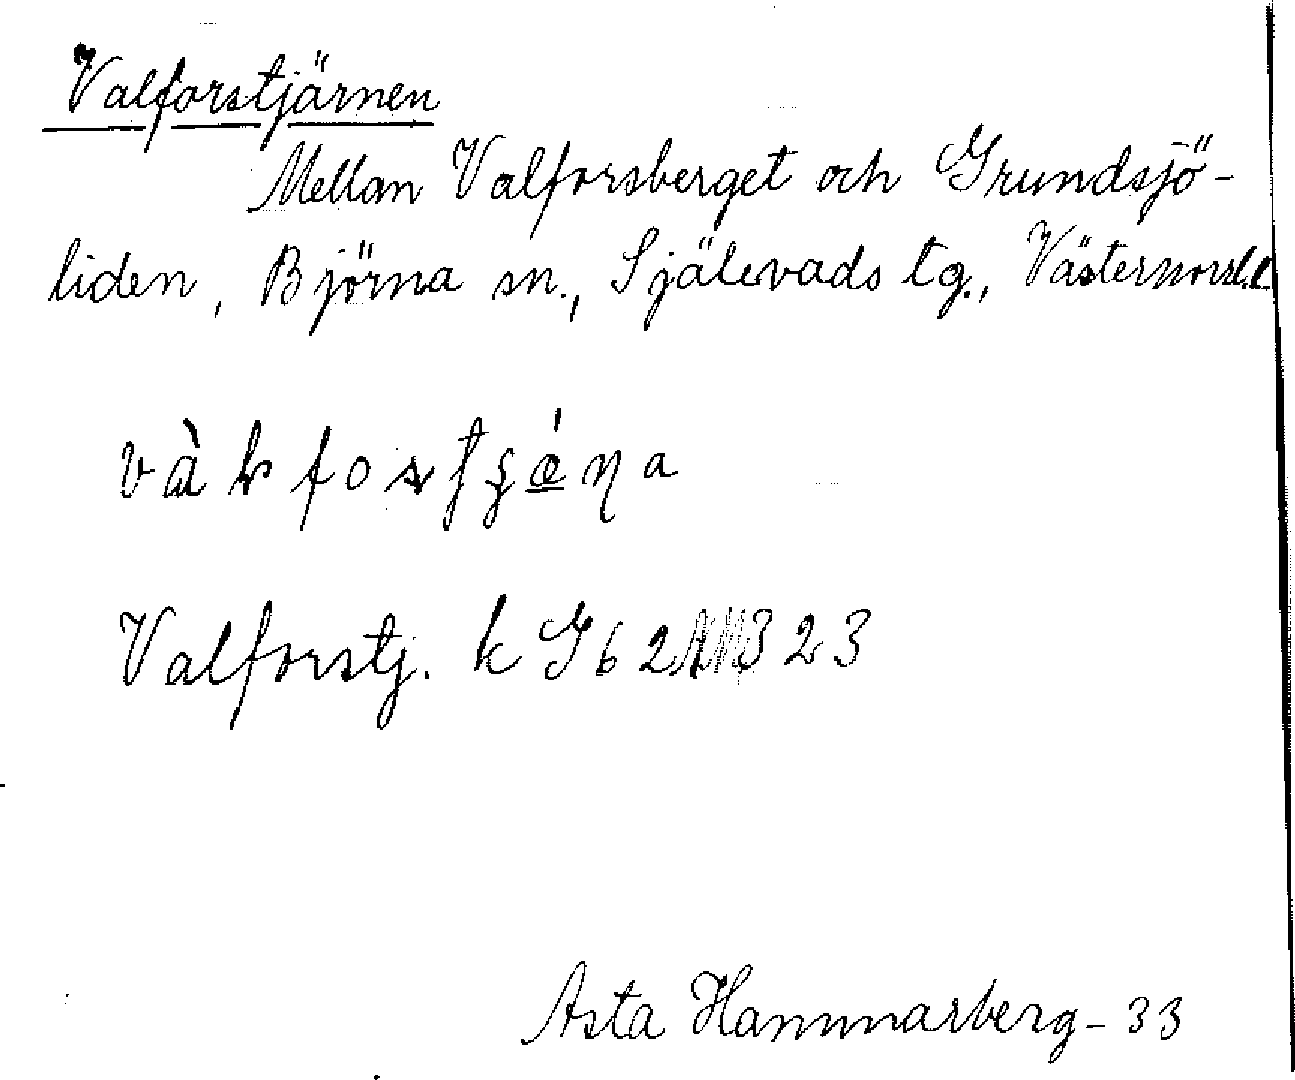 Valforstjärnen
Mellan Valforsberget och Grundsjö-
liden, Björna sn., Själevads tg., Västernorrl.l.
Valforstj. k G 62 323
Asta Hammarberg - 33